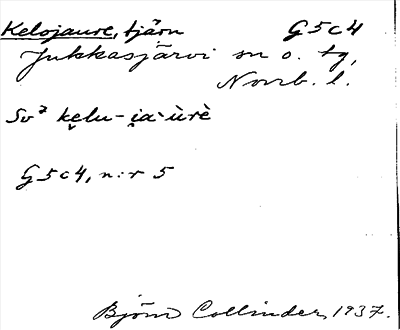 Kelojaure, tjärn G5c4
Jukkasjärvi sn o. tg,
Norrb. l.
Sv² ke̬lu-i̯a·ùrè
G5c4, n:r 5
Björn Collinder, 1937.